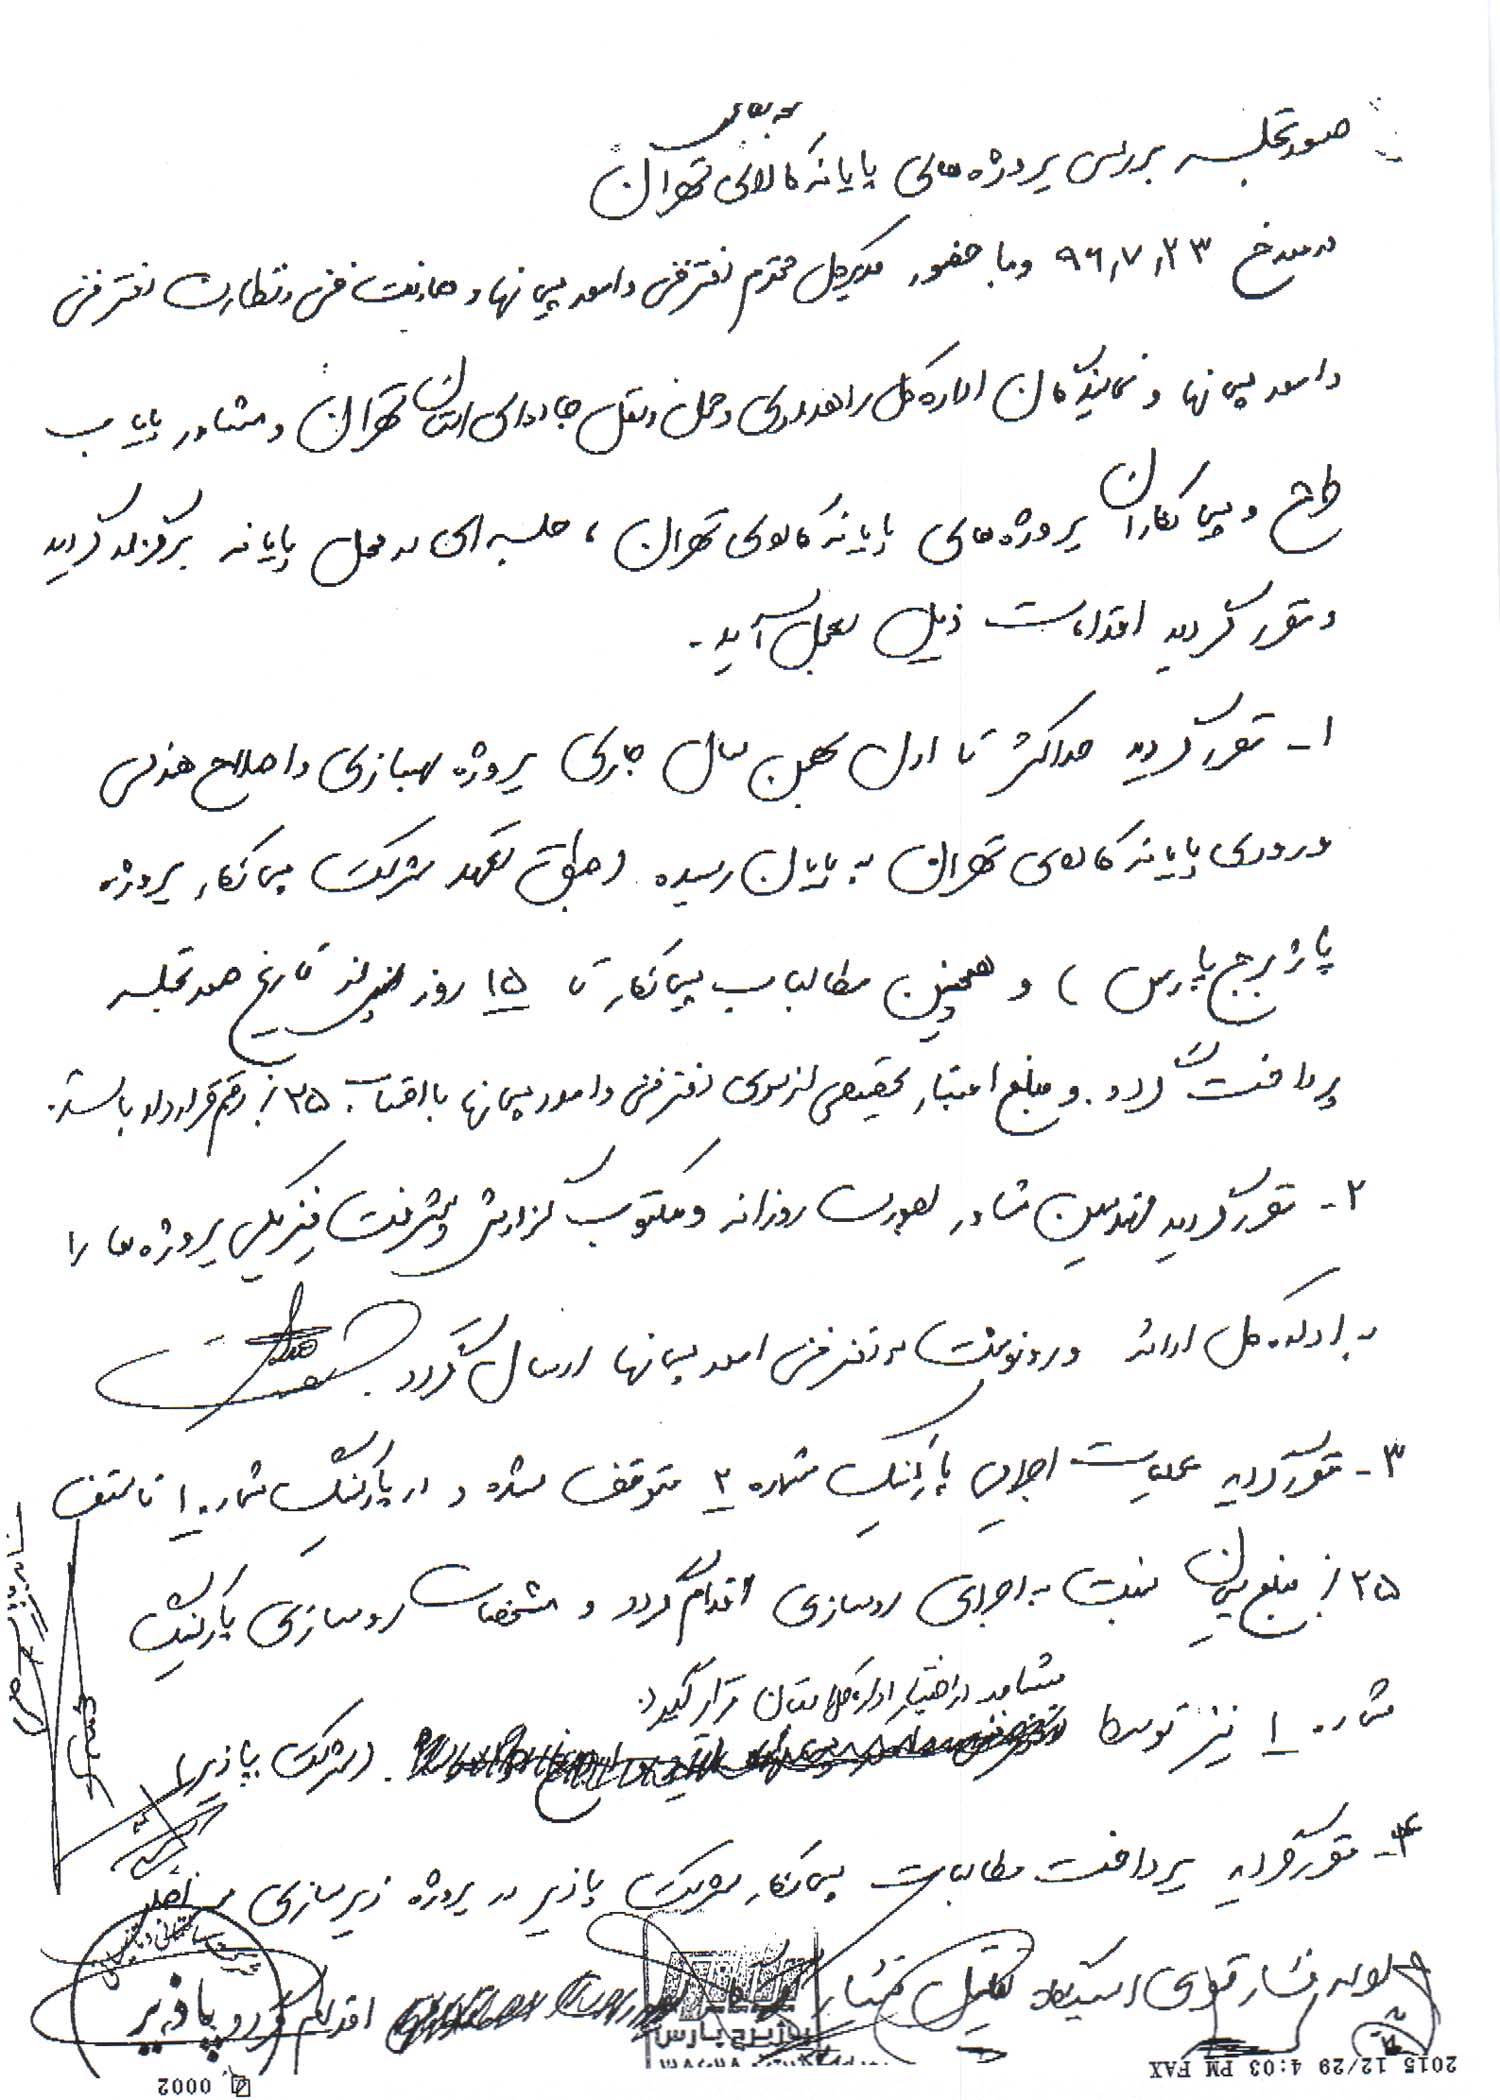 بسمه تعالی
صورتجلسه بررسی پروژه های پایانه کالای تهران
در مورخ ۹۶,۷,۲۳ و با حضور مدیرکل محترم دفتر فنی و امور پیمانها و معاونت فنی و نظارت دفتر فنی
و امور پیمانها و نمایندگان اداره کل راهداری و حمل و نقل جاده ای استان تهران و مشاور پایاب
طرح و پیمانکاران پروژه های پایانه کالای تهران ، جلسه ای در محل پایانه برگزار گردید
و مقرر گردید اقدامات ذیل بعمل آید -
۱ - مقرر گردید حداکثر تا اول بهمن سال جاری پروژه بهسازی و اصلاح هندسی
ورودی پایانه کالای تهران به پایان رسیده (مطابق تعهد شرکت پیمانکار پروژه
پاژ برج پارس ) و همچنین مطالبات پیمانکار تا ۱۵ روز پس از تاریخ صورتجلسه
پرداخت گردد. و مبلغ اعتبار تخصیصی از سوی دفتر فنی و امور پیمانها با احتساب ۲۵٪ رقم قرارداد باشد.
۲ - مقرر گردید مهندسین مشاور بصورت روزانه و مکتوب گزارش پیشرفت فیزیکی پروژه ها را
به اداره کل ارائه و رونوشت به دفتر فنی امور پیمانها ارسال گردد.
۳ - مقرر گردید عملیات اجرای پارکینگ شماره ۲ متوقف شده و در پارکینگ شماره ۱ تا سقف
۲۵٪ مبلغ پیمان نسبت به اجرای روسازی اقدام گردد و مشخصات روسازی پارکینگ
شماره ۱ نیز توسط مشاور در اختیار اداره کل استان قرار گیرد. (شرکت پاذیر)
۴ - مقرر گردید پرداخت مطالبات پیمانکار شرکت پاذیر در پروژه زیرسازی
لوله فشار قوی ایستگاه تقلیل فشار اقدام گردد
پاذیر
پاژ برج پارس
2015 12/29 4:03 PM FAX
0002